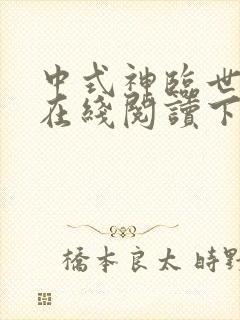 中式神臨世
在綫閱讀下
橋本良太 時野